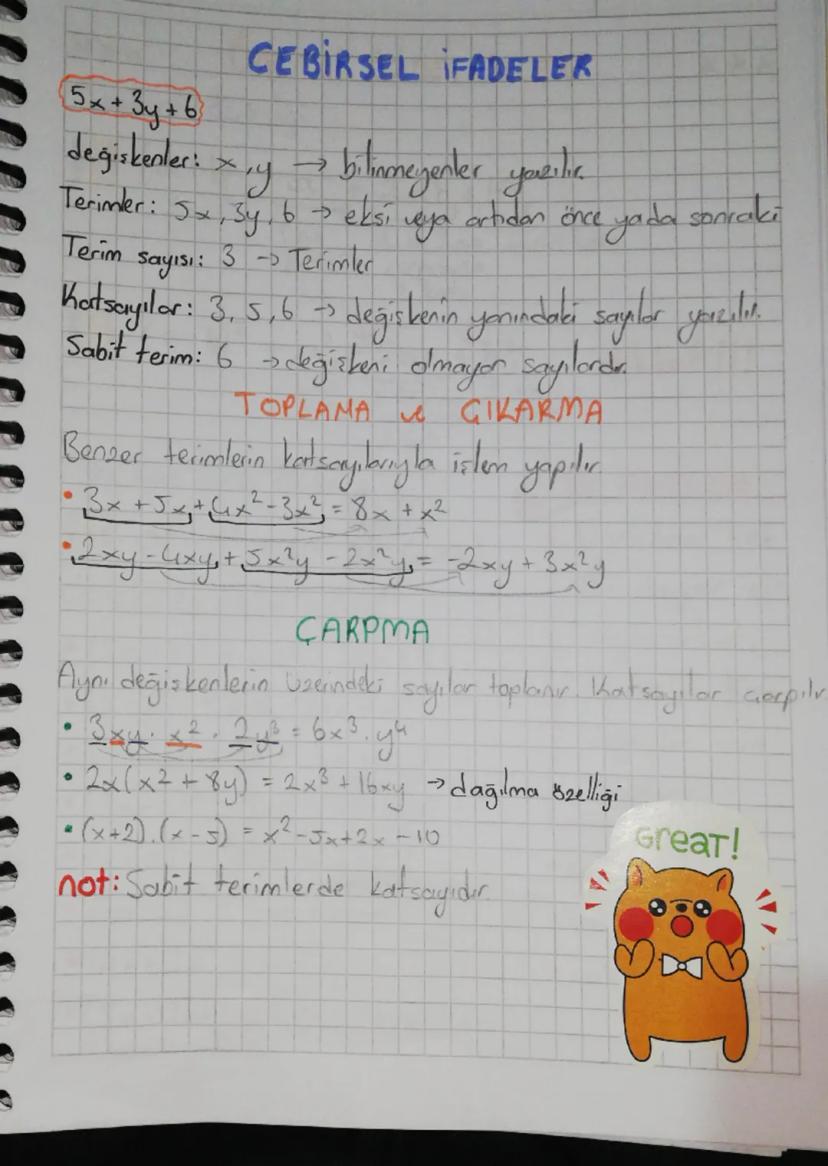 CEBİRSEL İFADELER
5x + 3y + 6
değişkenler: x, y → bilinmeyenler yazılır.
Terimler: 5x, 3y, 6 → eksi veya artıdan önce yada sonraki
Terim sayısı: 3 → Terimler
Katsayılar: 3, 5, 6 → değişkenin yanındaki sayılar yazılır.
Sabit terim: 6 → değişkeni olmayan sayılardır.
TOPLAMA ve ÇIKARMA
Benzer terimlerin katsayılarıyla işlem yapılır
• 3x + 5x + 4x² - 3x² = 8x + x²
• 2xy - 4xy + 5x²y - 2x²y = -2xy + 3x²y
ÇARPMA
Aynı değişkenlerin üzerindeki sayılar toplanır. Katsayılar çarpılır
• 3xy · x² · 2y³ = 6x³ · y⁴
• 2x(x² + 8y) = 2x³ + 16xy → dağılma özelliği
• (x+2).(x-5) = x² - 5x + 2x - 10
Great!
not: Sabit terimlerde katsayıdır.